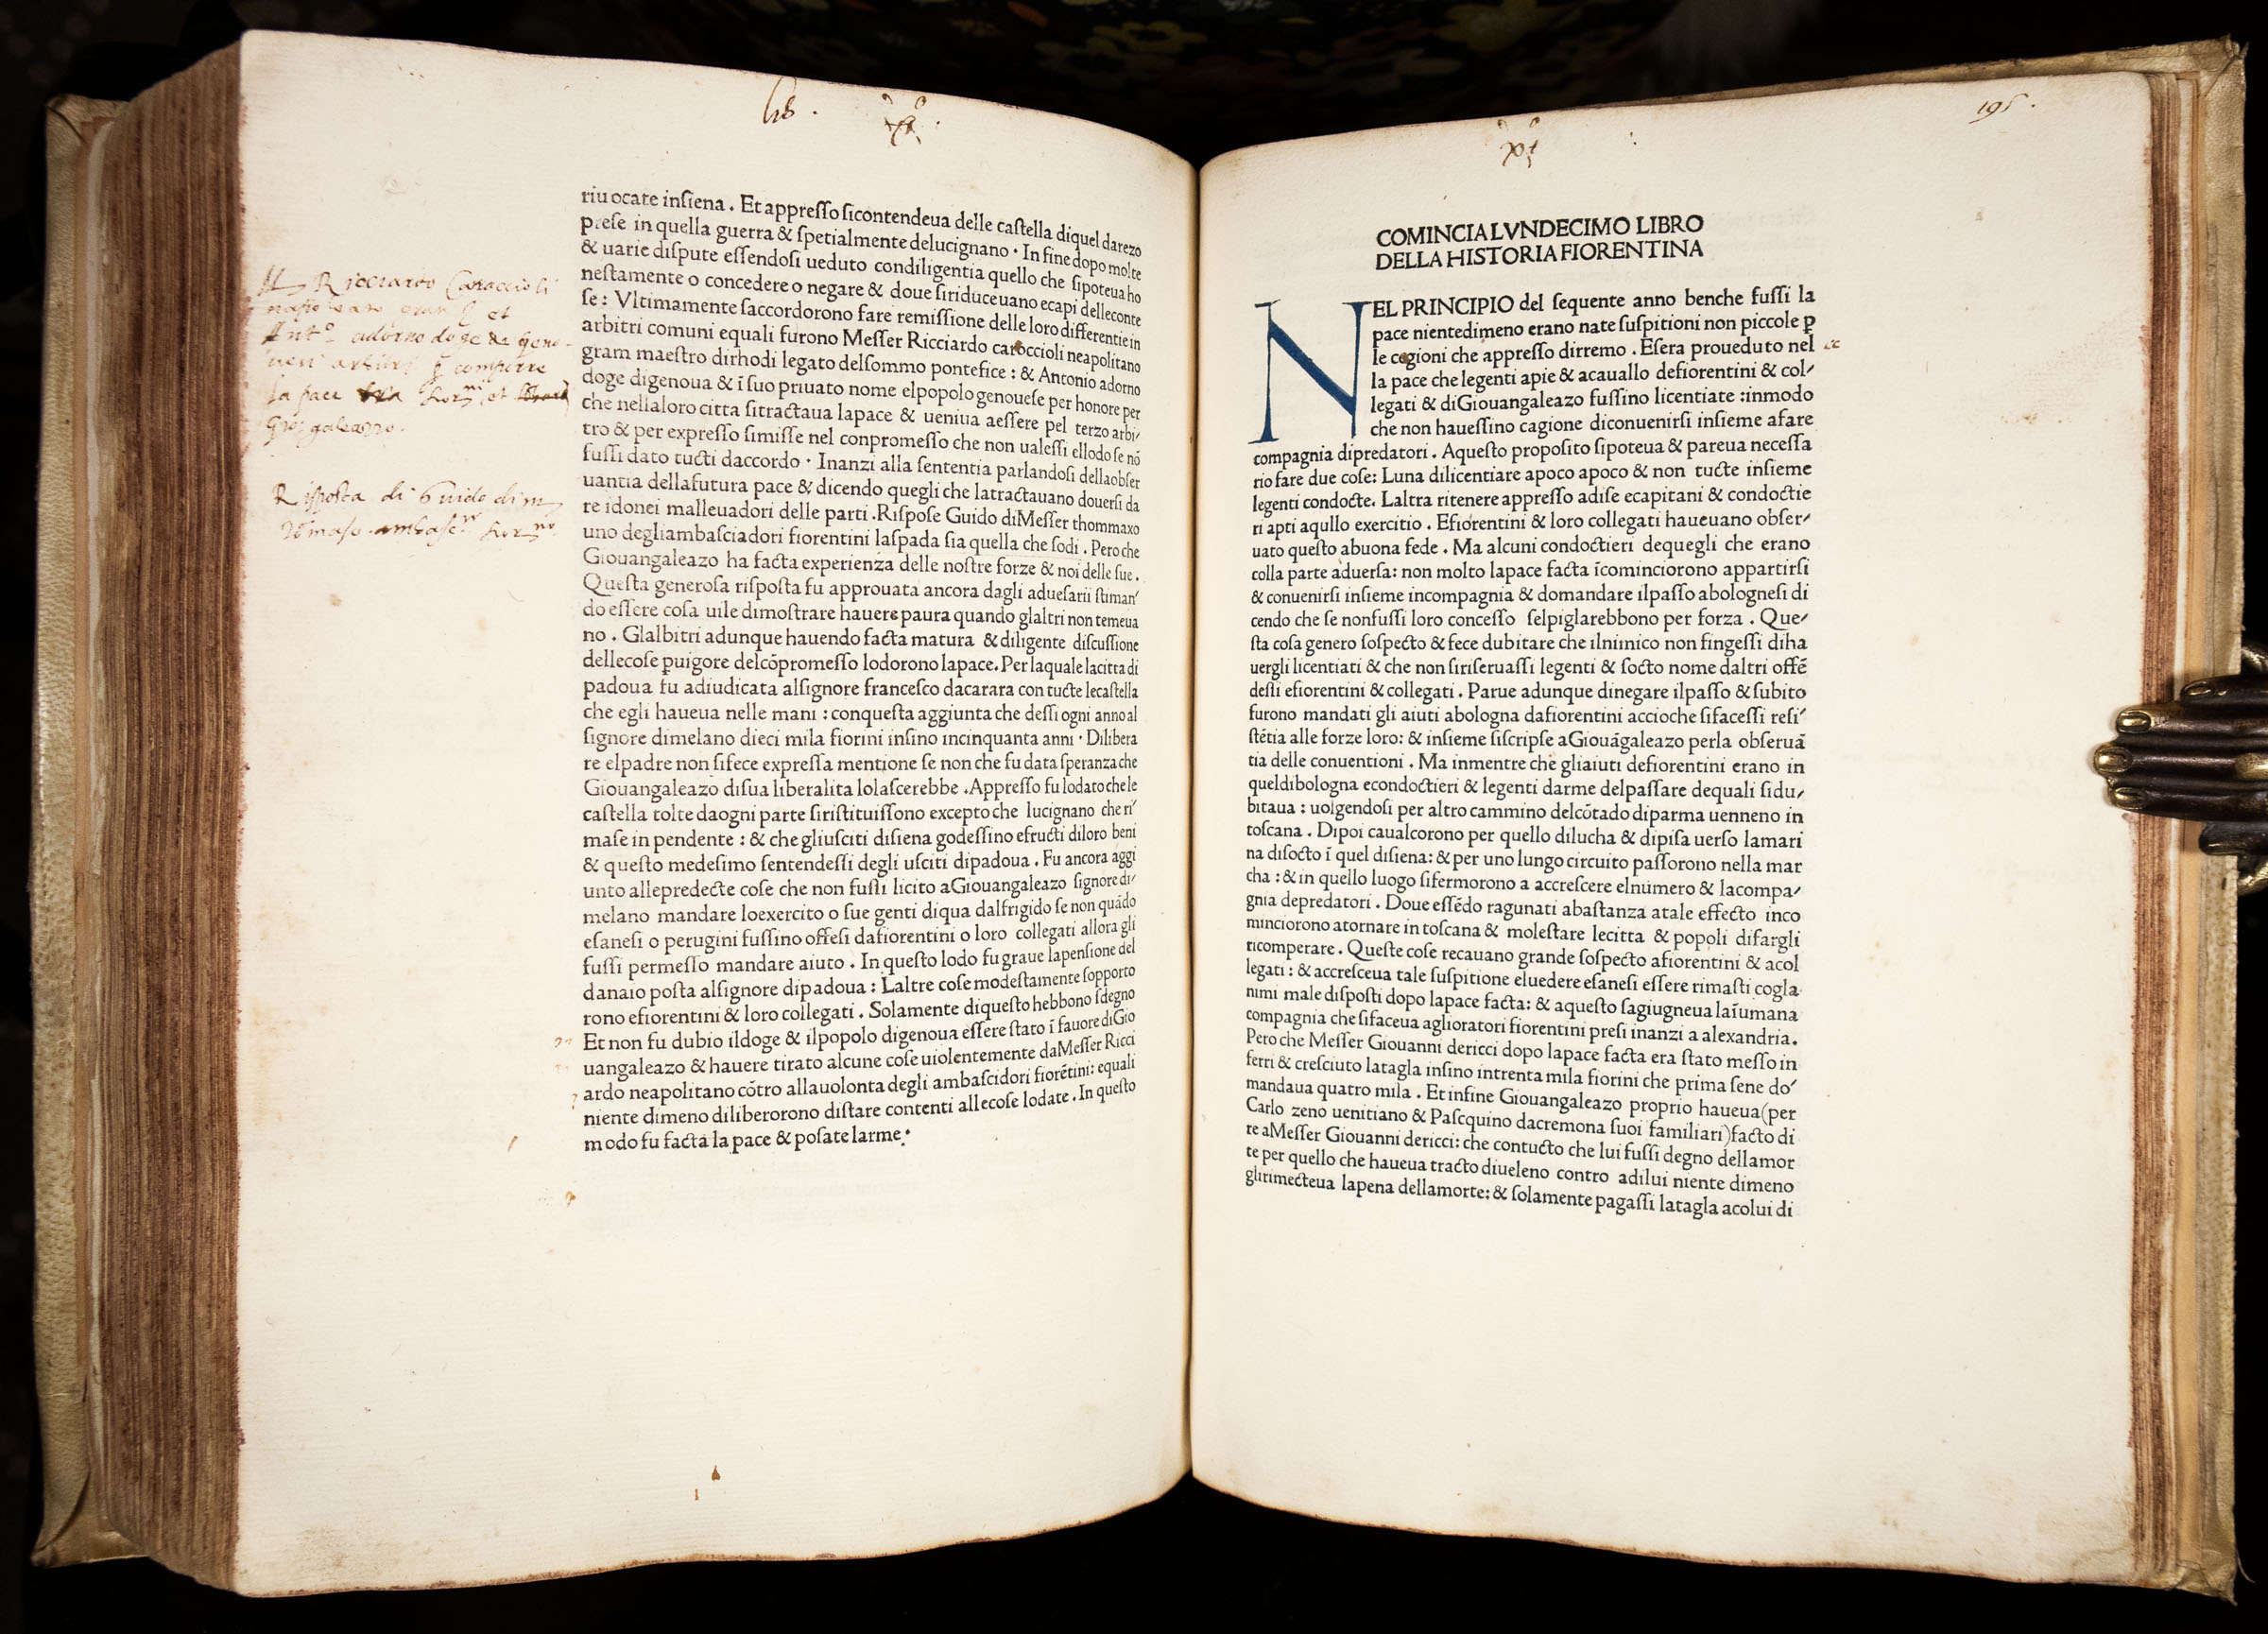 lib .
riuocate insiena . Et appresso sicontendeua delle castella diquel darezo
prese in quella guerra & spetialmente delucignano . In fine dopo molte
& uarie dispute essendosi ueduto condiligentia quello che sipoteua ho
nestamente o concedere o negare & doue siriduceuano ecapi delleconte
se : Vltimamente saccordorono fare remissione delle loro differentie in
arbitri comuni equali furono Messer Ricciardo caroccioli neapolitano
gram maestro dirhodi legato delsommo pontefice : & Antonio adorno
doge digenoua & ī suo priuato nome elpopolo genouese per honore per
che nellaloro citta sitractaua lapace & ueniua aessere pel terzo arbi/
tro & per expresso simisse nel conpromesso che non ualessi ellodo se nō
fussi dato tucti daccordo . Inanzi alla sententia parlandosi dellaobser
uantia dellafutura pace & dicendo quegli che latractauano douersi da
re idonei malleuadori delle parti . Rispose Guido diMesser thommaxo
uno degliambasciadori fiorentini laspada sia quella che sodi . Pero che
Giouangaleazo ha facta experienza delle nostre forze & noi delle sue .
Questa generosa risposta fu approuata ancora dagli aduesarii stiman/
do essere cosa uile dimostrare hauere paura quando glaltri non temeua
no . Glalbitri adunque hauendo facta matura & diligente discussione
dellecose puigore delcōpromesso lodorono lapace . Per laquale lacitta di
padoua fu adiudicata alsignore francesco dacarara con tucte lecastella
che egli haueua nelle mani : conquesta aggiunta che dessi ogni anno al
signore dimelano dieci mila fiorini insino incinquanta anni . Dilibera
re elpadre non sifece expressa mentione se non che fu data speranza che
Giouangaleazo disua liberalita lolascerebbe . Appresso fu lodato che le
castella tolte daogni parte siristituissono excepto che lucignano che ri/
mase in pendente : & che gliusciti disiena godessino efructi diloro beni
& questo medesimo sentendessi degli usciti dipadoua . Fu ancora aggi
unto allepredecte cose che non fussi licito aGiouangaleazo signore di/
melano mandare loexercito o sue genti diqua dalfrigido se non quādo
esanesi o perugini fussino offesi dafiorentini o loro collegati allora gli
fussi permesso mandare aiuto . In questo lodo fu graue lapensione del
danaio posta alsignore dipadoua : Laltre cose modestamente sopporto
rono efiorentini & loro collegati . Solamente diquesto hebbono sdegno
Et non fu dubio ildoge & ilpopolo digenoua essere stato ī fauore diGio
uangaleazo & hauere tirato alcune cose uiolentemente daMesser Ricci
ardo neapolitano cōtro allauolonta degli ambascidori fiorētini : equali
niente dimeno diliberorono distare contenti allecose lodate . In questo
modo fu facta la pace & posate larme .
Ricciardo Caraccioli
et
Ant.º adorno doge de geno-
uesi arbitri comporre
la pace et
galeazo .
Risposta di Guido di m
Tomaso ambasc.
195 .
COMINCIA LVNDECIMO LIBRO
DELLA HISTORIA FIORENTINA
NEL PRINCIPIO del sequente anno benche fussi la
pace nientedimeno erano nate suspitioni non piccole ꝑ
le cagioni che appresso dirremo . Esera proueduto nel
la pace che legenti apie & acauallo defiorentini & col/
legati & diGiouangaleazo fussino licentiate : inmodo
che non hauessino cagione diconuenirsi insieme afare
compagnia dipredatori . Aquesto proposito sipoteua & pareua necessa
rio fare due cose : Luna dilicentiare apoco apoco & non tucte insieme
legenti condocte . Laltra ritenere appresso adise ecapitani & condoctie
ri apti aqullo exercitio . Efiorentini & loro collegati haueuano obser/
uato questo abuona fede . Ma alcuni condoctieri dequegli che erano
colla parte aduersa : non molto lapace facta īcominciorono appartirsi
& conuenirsi insieme incompagnia & domandare ilpasso abolognesi di
cendo che se nonfussi loro concesso selpiglarebbono per forza . Que/
sta cosa genero sospecto & fece dubitare che ilnimico non fingessi diha
uergli licentiati & che non siriseruassi legenti & socto nome daltri offē
dessi efiorentini & collegati . Parue adunque dinegare ilpasso & subito
furono mandati gli aiuti abologna dafiorentini accioche sifacessi resi/
stētia alle forze loro : & insieme siscripse aGiouāgaleazo perla obseruā
tia delle conuentioni . Ma inmentre che gliaiuti defiorentini erano in
queldibologna econdoctieri & legenti darme delpassare dequali sidu/
bitaua : uolgendosi per altro cammino delcōtado diparma uenneno in
toscana . Dipoi caualcorono per quello dilucha & dipisa uerso lamari
na disocto ī quel disiena : & per uno lungo circuito passorono nella mar
cha : & in quello luogo sifermorono a accrescere elnumero & lacompa/
gnia depredatori . Doue essēdo ragunati abastanza atale effecto inco
minciorono atornare in toscana & molestare lecitta & popoli difargli
ricomperare . Queste cose recauano grande sospecto afiorentini & acol
legati : & accresceua tale suspitione eluedere esanesi essere rimasti cogla
nimi male disposti dopo lapace facta : & aquesto sagiugneua laīumana
compagnia che sifaceua aglioratori fiorentini presi inanzi a alexandria .
Pero che Messer Giouanni dericci dopo lapace facta era stato messo in
ferri & cresciuto latagla insino intrenta mila fiorini che prima sene do/
mandaua quatro mila . Et infine Giouangaleazo proprio haueua (per
Carlo zeno uenitiano & Pascquino dacremona suoi familiari) facto di
re aMesser Giouanni dericci : che contucto che lui fussi degno dellamor
te per quello che haueua tracto diueleno contro adilui niente dimeno
glirimecteua lapena dellamorte : & solamente pagassi latagla acolui di